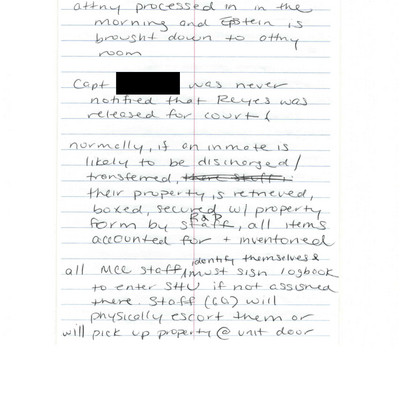 attny processed in in the
morning and Epstein is
brought down to attny
room
Capt was never
notified that Reyes was
released for court!
normally, if an inmate is
likely to be discharged/
transferred, there stuff,
their property is retrieved,
boxed, secured w/ property
form by staff, R&R all items
accounted for + inventoried
all MCC staff, identify themselves & must sign logbook
to enter SHU if not assigned
there. Staff (CO) will
physically escort them or
will pick up property @ unit door